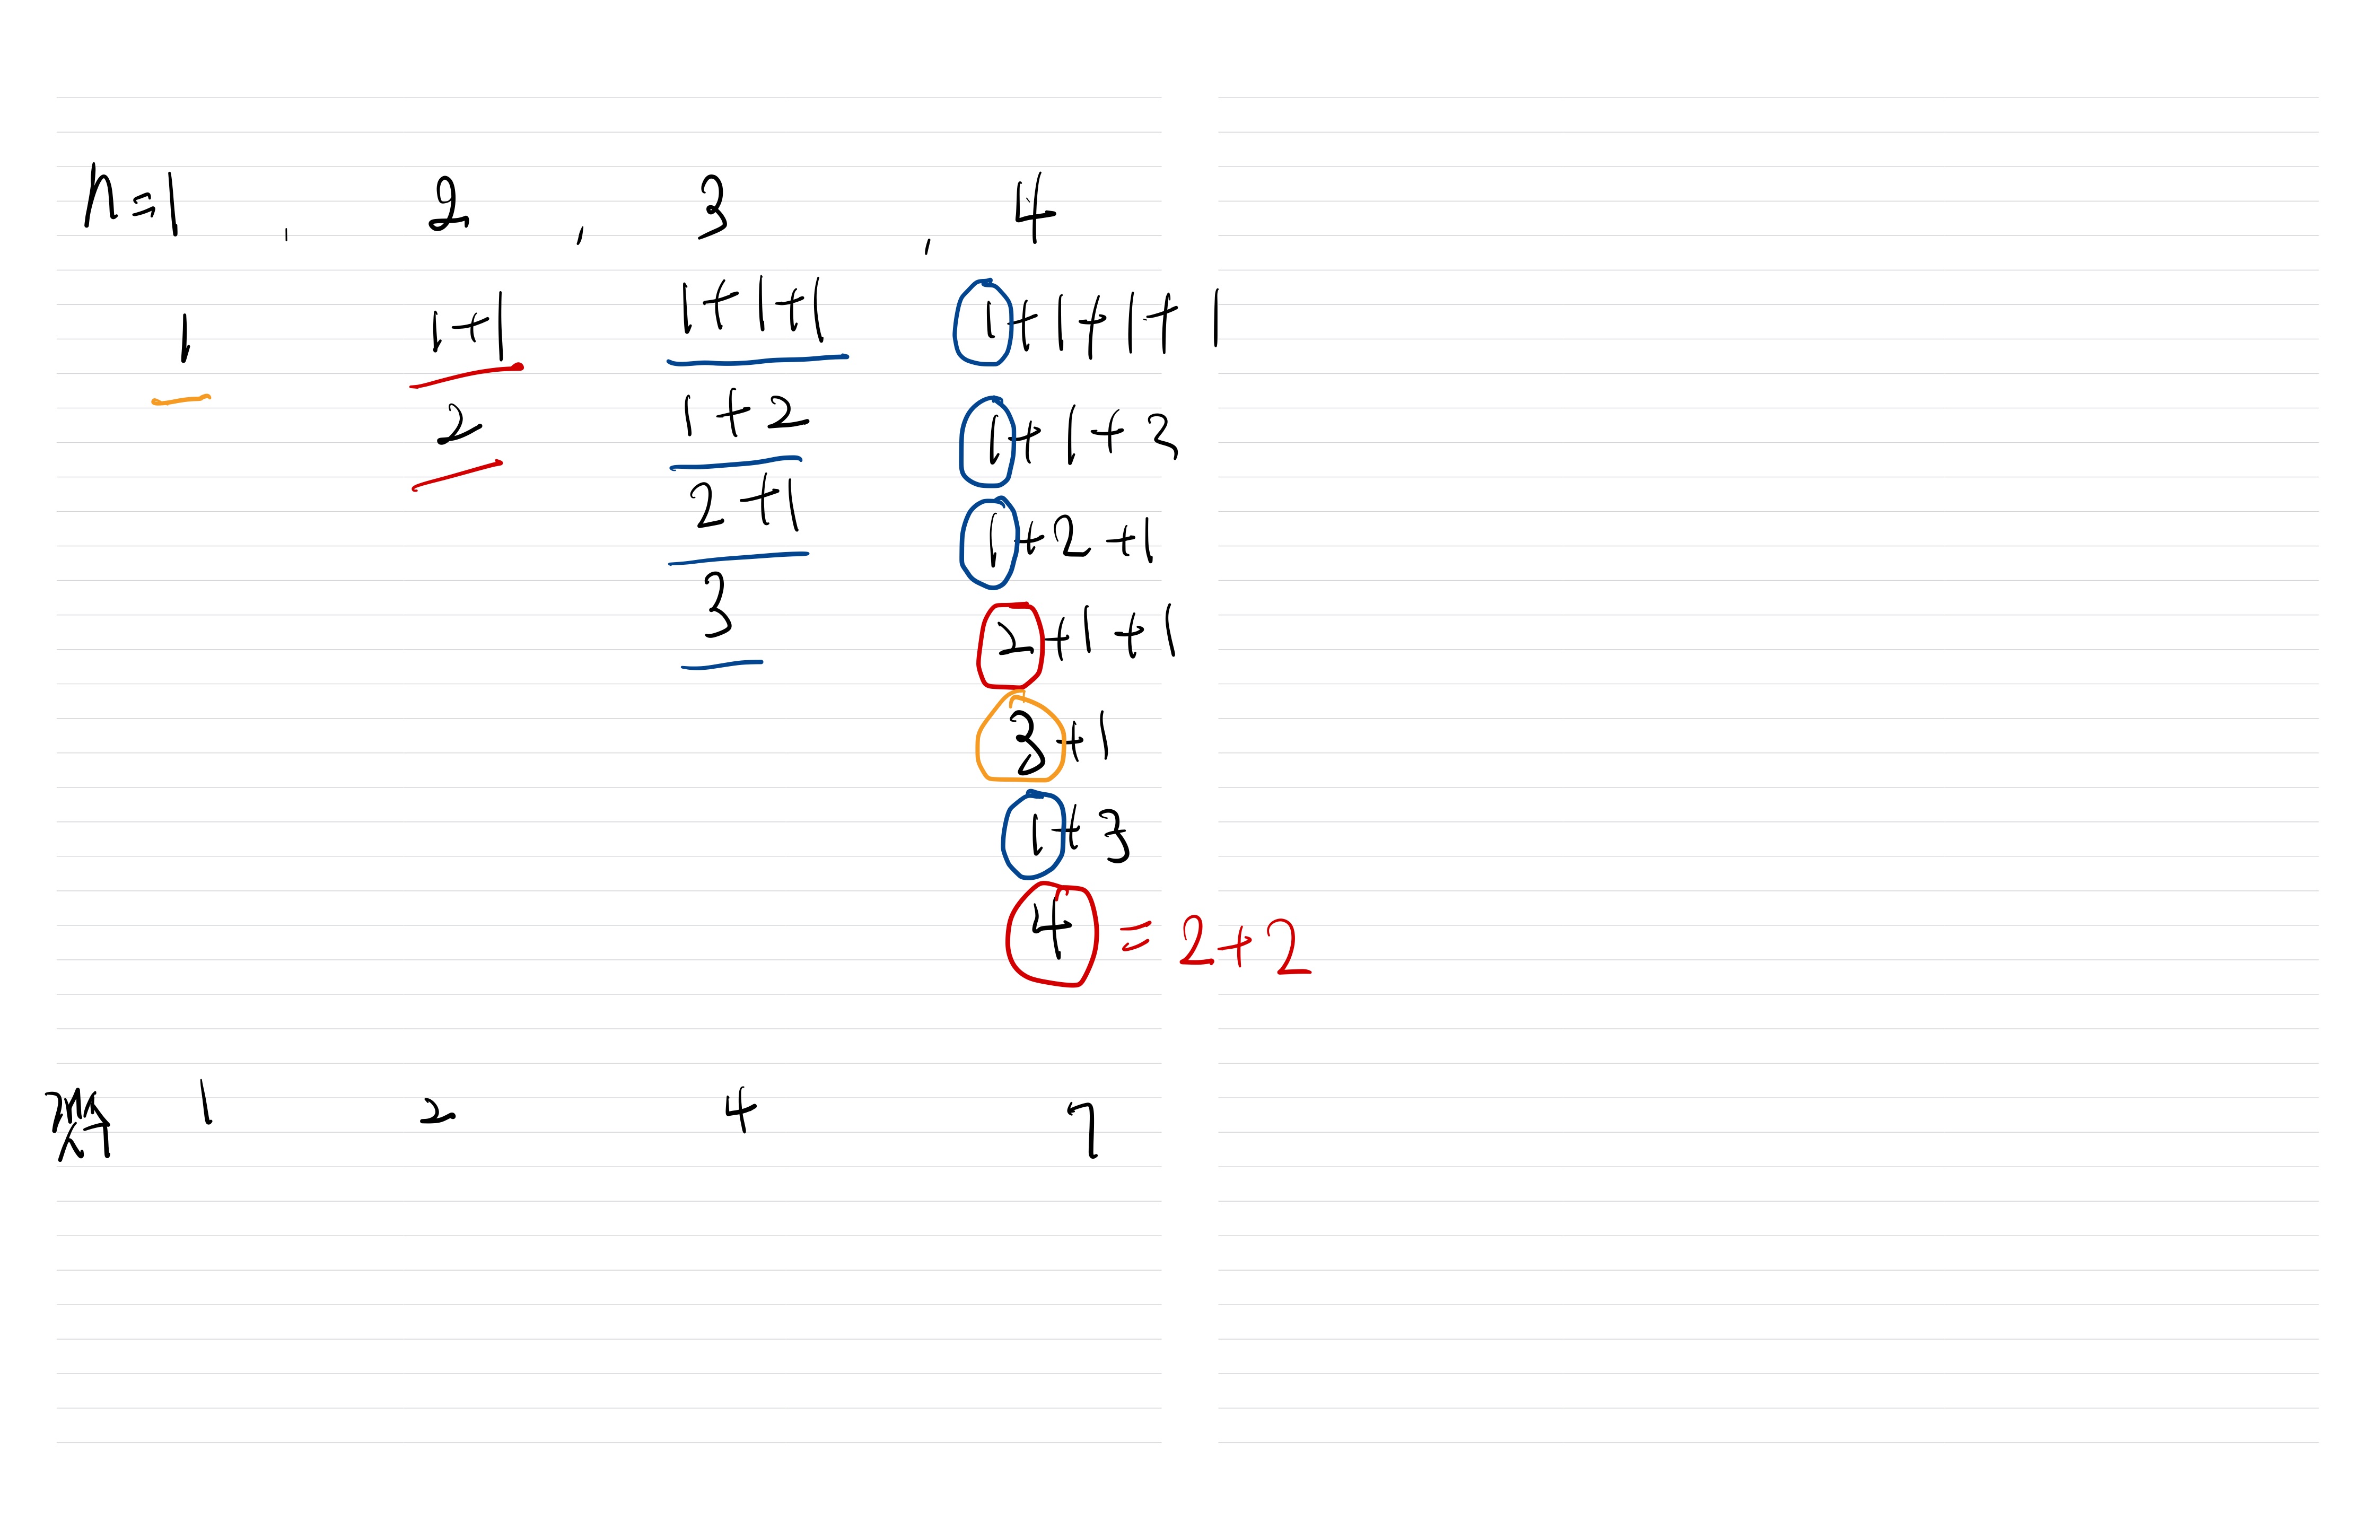 n=1 , 2 , 3 , 4
1 1+1 1+1+1 1+1+1+1
2 1+2 1+1+2
2+1 1+2+1
3 2+1+1
3+1
1+3
4 = 2+2
1 2 4 7